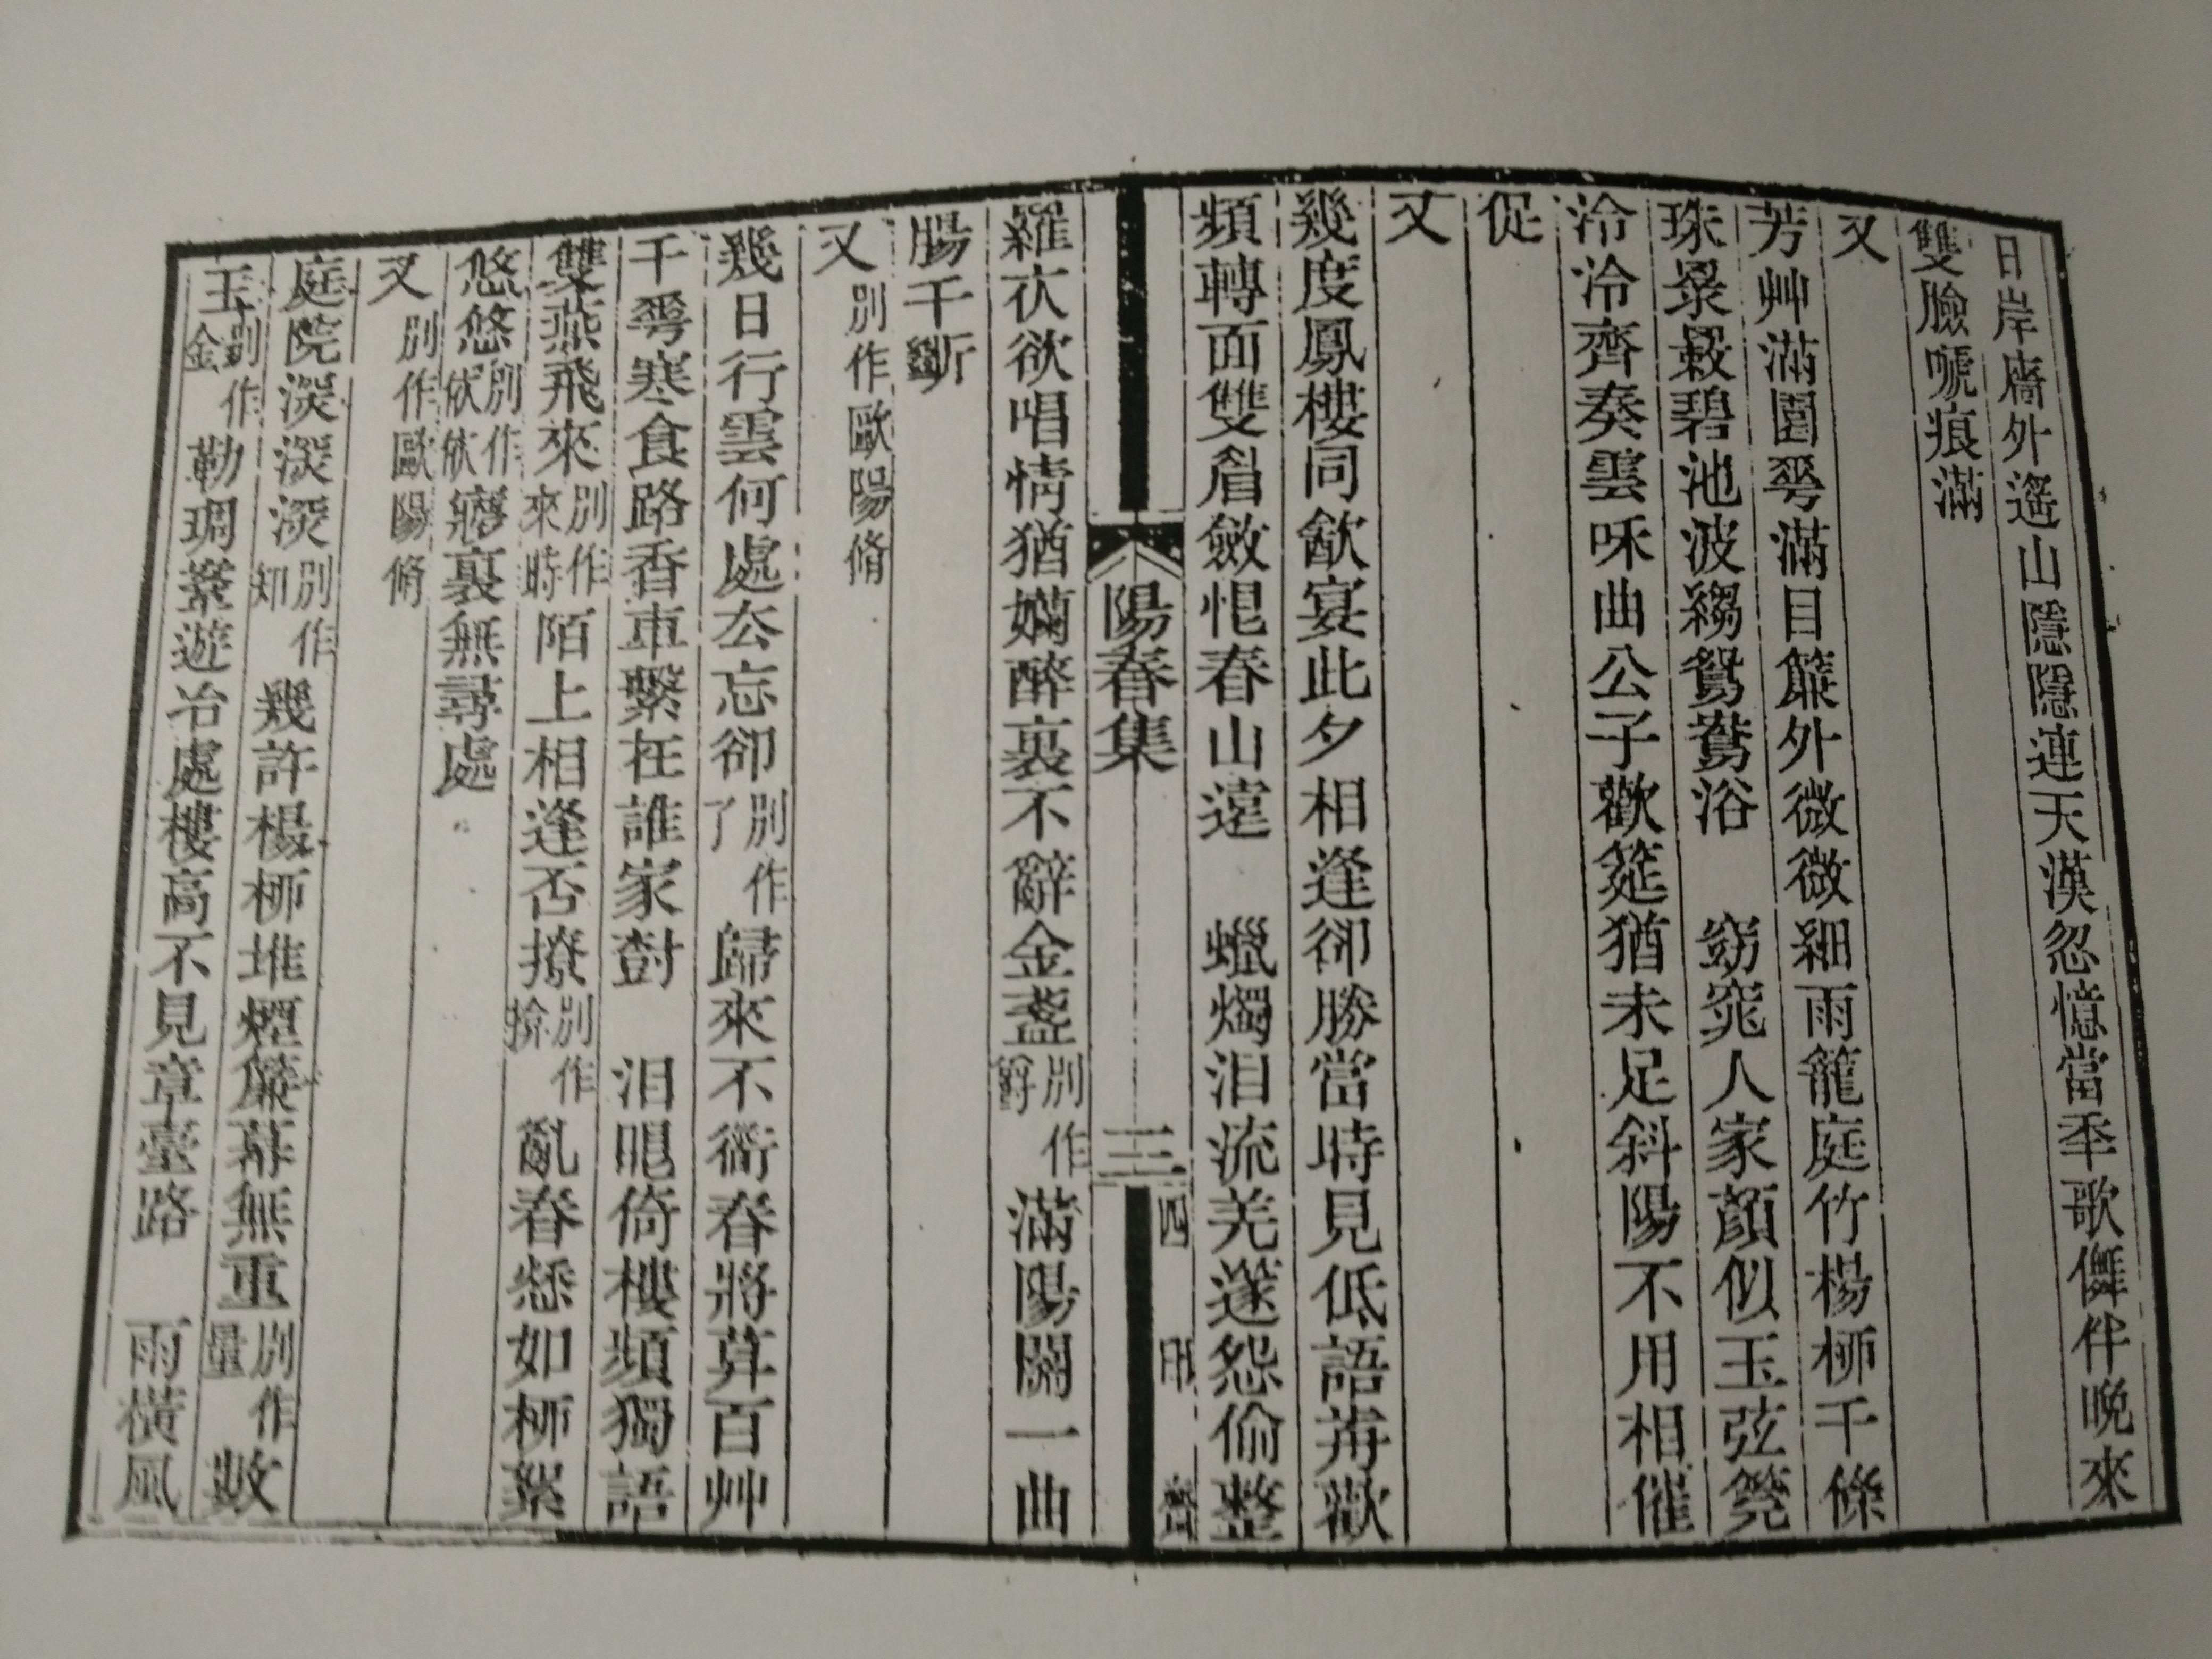 日岸廧外遙山隱隱連天漢忽憶當秊歌儛伴晚來
雙臉嗁痕滿
又
芳艸滿園䓵滿目簾外微微細雨籠庭竹楊柳千條
珠㬎㲄碧池波縐鴛鴦浴　窈窕人家顏似玉弦筦
泠泠齊奏雲咊曲公子歡筵猶未足斜陽不用相催
促
又
幾度鳳樓同歈宴此夕相逢卻勝當時見低語歬歡
頻轉面雙眉斂恨春山遠　蠟燭淚流羌邃怨偷整
陽春集
三
四
印
齋
羅衣欲唱情猶嬾醉裏不辭金盞別作爵滿陽關一曲
腸千斷
又別作歐陽脩
幾日行雲何處去忘卻別作了歸來不衜春將莫百艸
千䓵寒食路香車繫在誰家對　淚眼倚樓頻獨語
雙燕飛來別作來時陌上相逢否撩別作撿亂春愁如柳絮
悠悠別作依依㝱裏無尋處
又別作歐陽脩
庭院深深深別作知幾許楊柳堆煙簾幕無重別作量數
玉別作金勒琱鞌遊冶處樓高不見章臺路　雨橫風